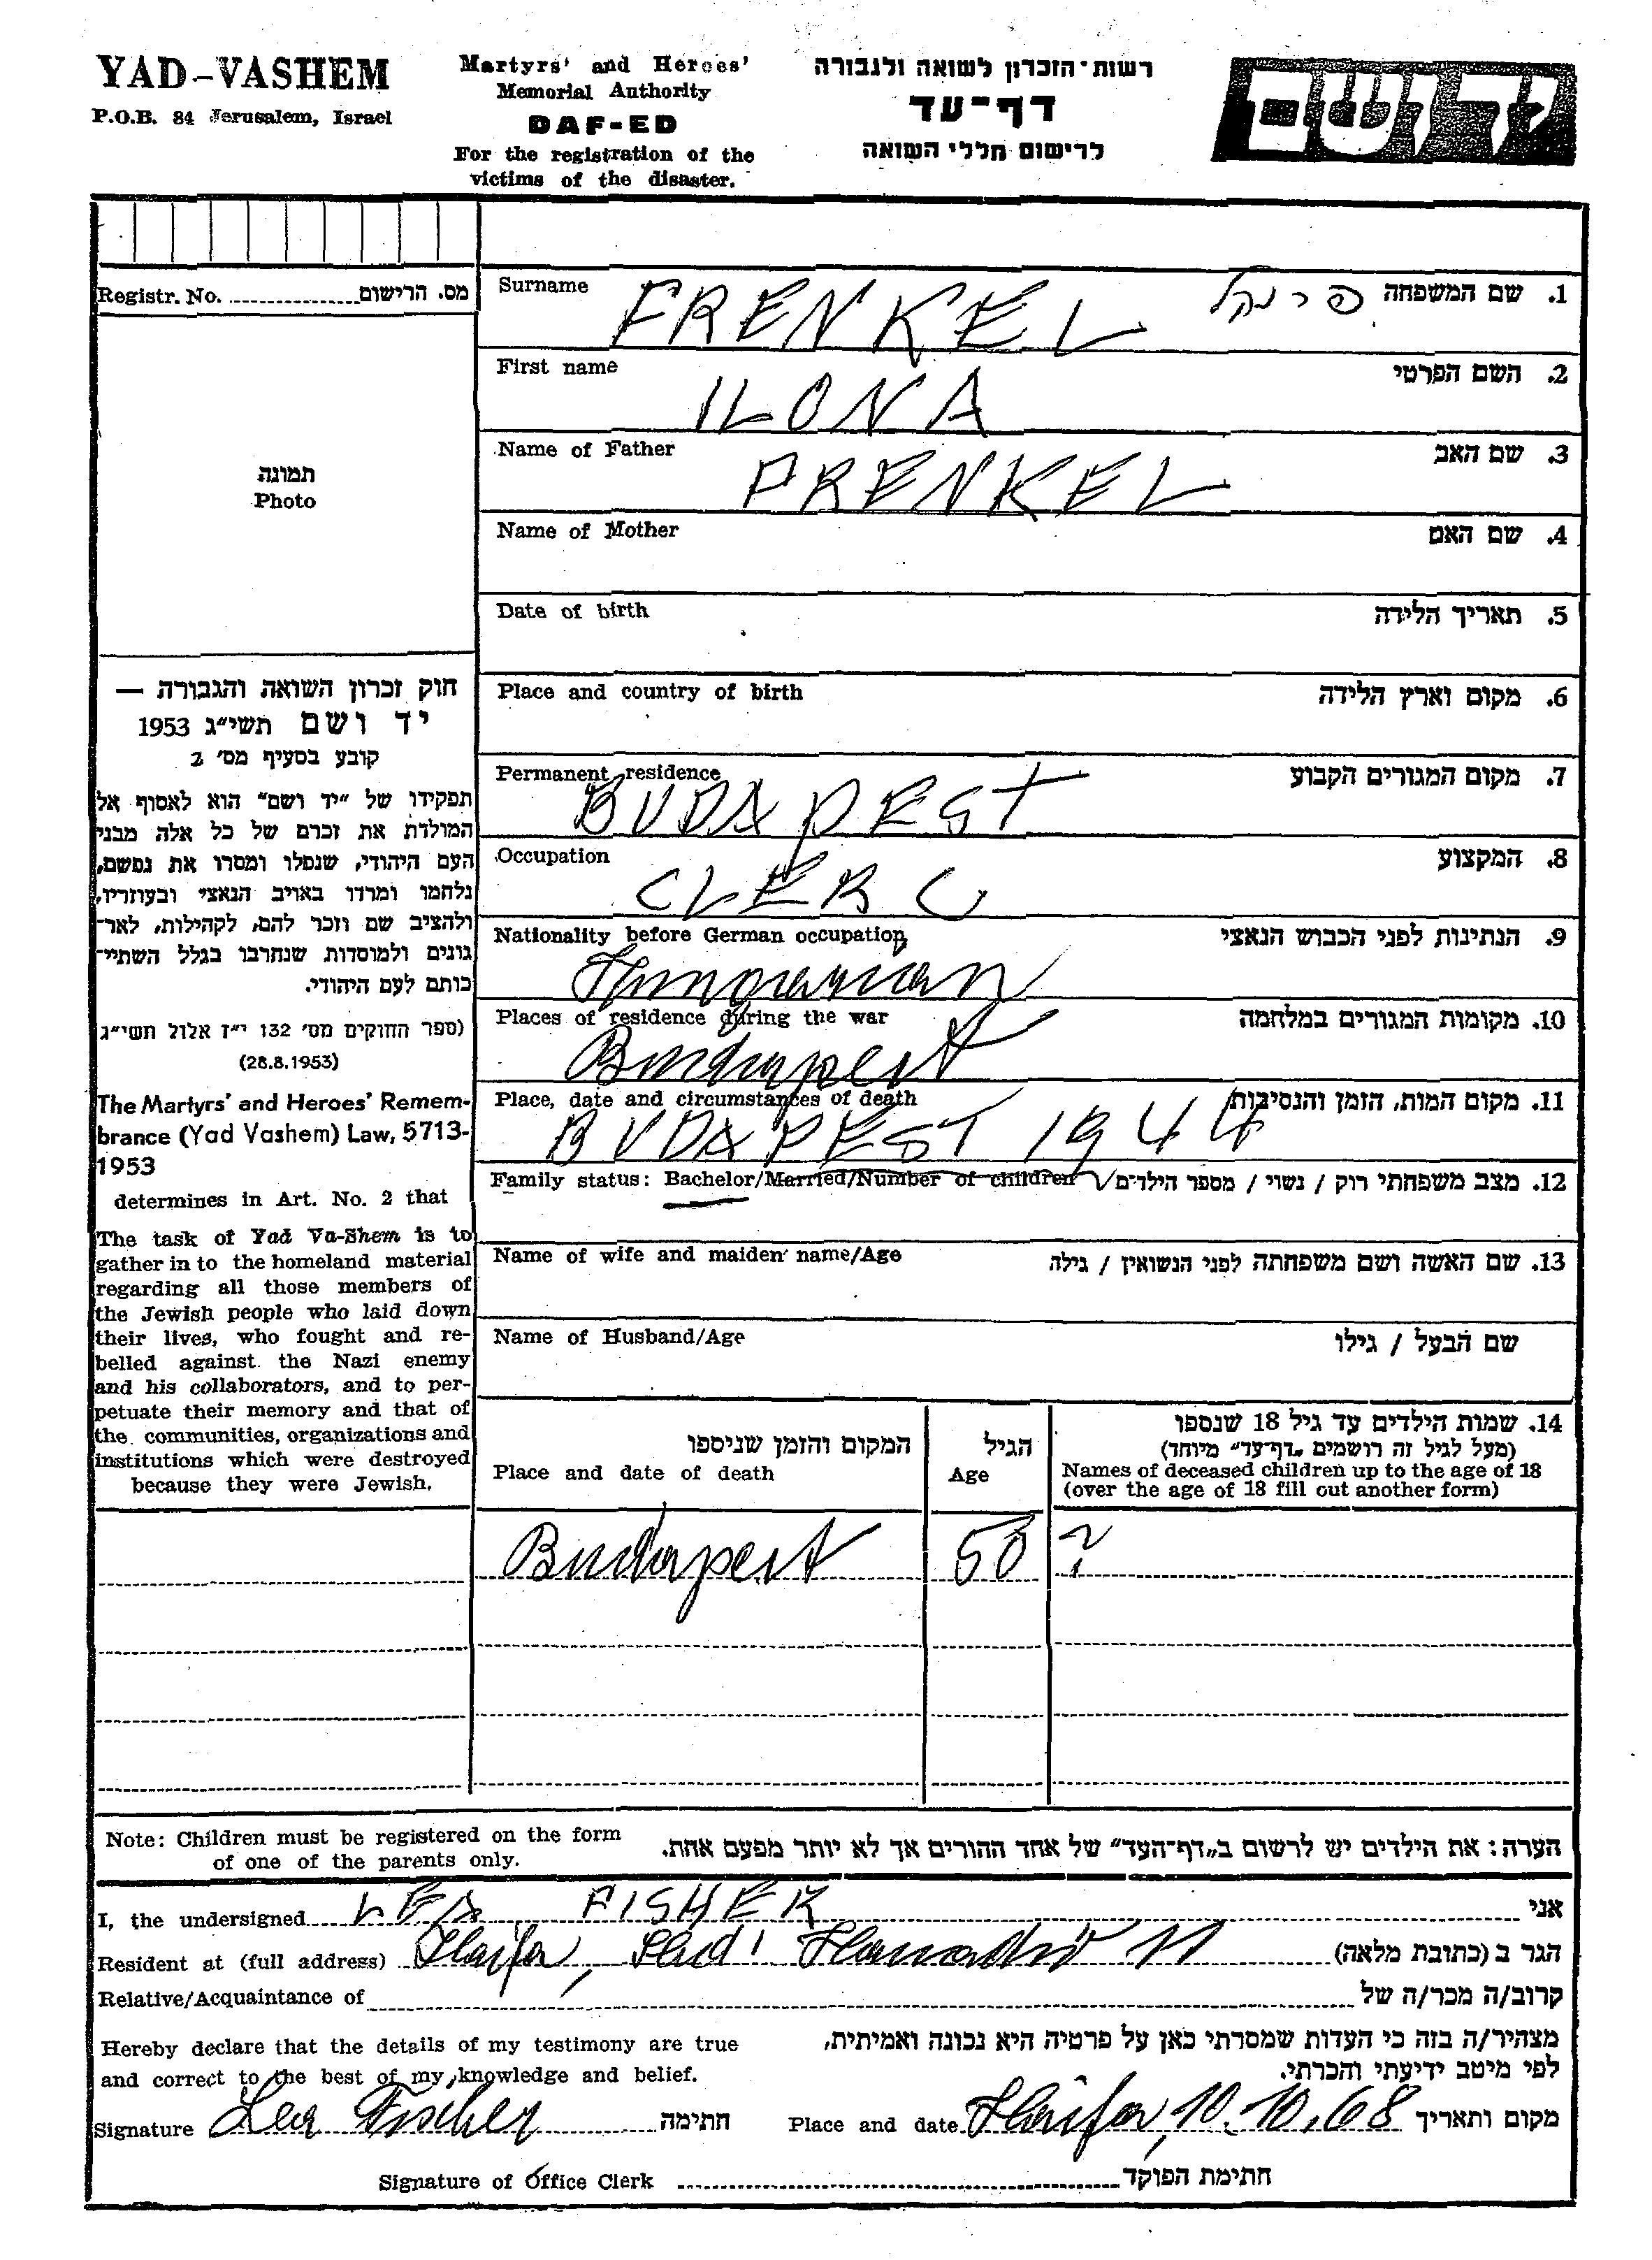 YAD-VASHEM
P.O.B. 84 Jerusalem, Israel
Martyrs' and Heroes'
Memorial Authority
DAF-ED
For the registration of the
victims of the disaster.
רשות-הזכרון לשואה ולגבורה
דף-עד
לרישום חללי השואה
יד ושם
Registr. No. מס. הרישום
תמונה
Photo
חוק זכרון השואה והגבורה —
יד ושם תשי"ג 1953
קובע בסעיף מס' 2
תפקידו של "יד ושם" הוא לאסוף אל
המולדת את זכרם של כל אלה מבני
העם היהודי, שנפלו ומסרו את נפשם,
נלחמו ומרדו באויב הנאצי ובעוזריו,
ולהציב שם וזכר להם, לקהילות, לאר-
גונים ולמוסדות שנחרבו בגלל השתיי-
כותם לעם היהודי.
(ספר החוקים מס' 132 י"ז אלול תשי"ג
(28.8.1953)
The Martyrs' and Heroes' Remem-
brance (Yad Vashem) Law, 5713-
1953
determines in Art. No. 2 that
The task of Yad Va-Shem is to
gather in to the homeland material
regarding all those members of
the Jewish people who laid down
their lives, who fought and re-
belled against the Nazi enemy
and his collaborators, and to per-
petuate their memory and that of
the communities, organizations and
institutions which were destroyed
because they were Jewish.
Surname 1. שם המשפחה
FRENKEL פרנקל
First name 2. השם הפרטי
ILONA
Name of Father 3. שם האב
FRENKEL
Name of Mother 4. שם האם
Date of birth 5. תאריך הלידה
Place and country of birth 6. מקום וארץ הלידה
Permanent residence 7. מקום המגורים הקבוע
BUDAPEST
Occupation 8. המקצוע
CLERC
Nationality before German occupation 9. הנתינות לפני הכבוש הנאצי
Hungarian
Places of residence during the war 10. מקומות המגורים במלחמה
Budapest
Place, date and circumstances of death 11. מקום המות, הזמן והנסיבות
BUDAPEST 1944
Family status: Bachelor/Married/Number of children 12. מצב משפחתי רוק / נשוי / מספר הילדים
Name of wife and maiden name/Age 13. שם האשה ושם משפחתה לפני הנשואין / גילה
Name of Husband/Age שם הבעל / גילו
המקום והזמן שניספו
Place and date of death
הגיל
Age
14. שמות הילדים עד גיל 18 שנספו
(מעל לגיל זה רושמים "דף-עד" מיוחד)
Names of deceased children up to the age of 18
(over the age of 18 fill out another form)
Budapest 50 ?
Note: Children must be registered on the form
of one of the parents only.
הערה: את הילדים יש לרשום ב"דף-העד" של אחד ההורים אך לא יותר מפעם אחת.
I, the undersigned LEA FISHER אני
Resident at (full address) Haifa, הגר ב (כתובת מלאה)
Relative/Acquaintance of קרוב/ה מכר/ה של
Hereby declare that the details of my testimony are true
and correct to the best of my knowledge and belief.
מצהיר/ה בזה כי העדות שמסרתי כאן על פרטיה היא נכונה ואמיתית,
לפי מיטב ידיעתי והכרתי.
Signature Lea Fischer חתימה Place and date Haifa, 10.10.68 מקום ותאריך
Signature of Office Clerk חתימת הפוקד